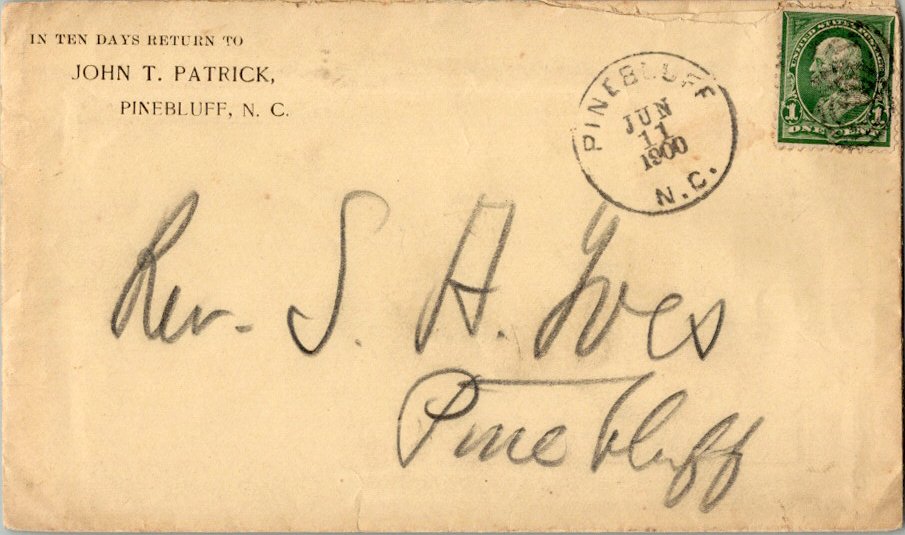 IN TEN DAYS RETURN TO
JOHN T. PATRICK,
PINEBLUFF, N. C.
PINEBLUFF
JUN
11
1900
N.C.
1 1
ONE CENT
Rev. S. H. Ives
Pine bluff